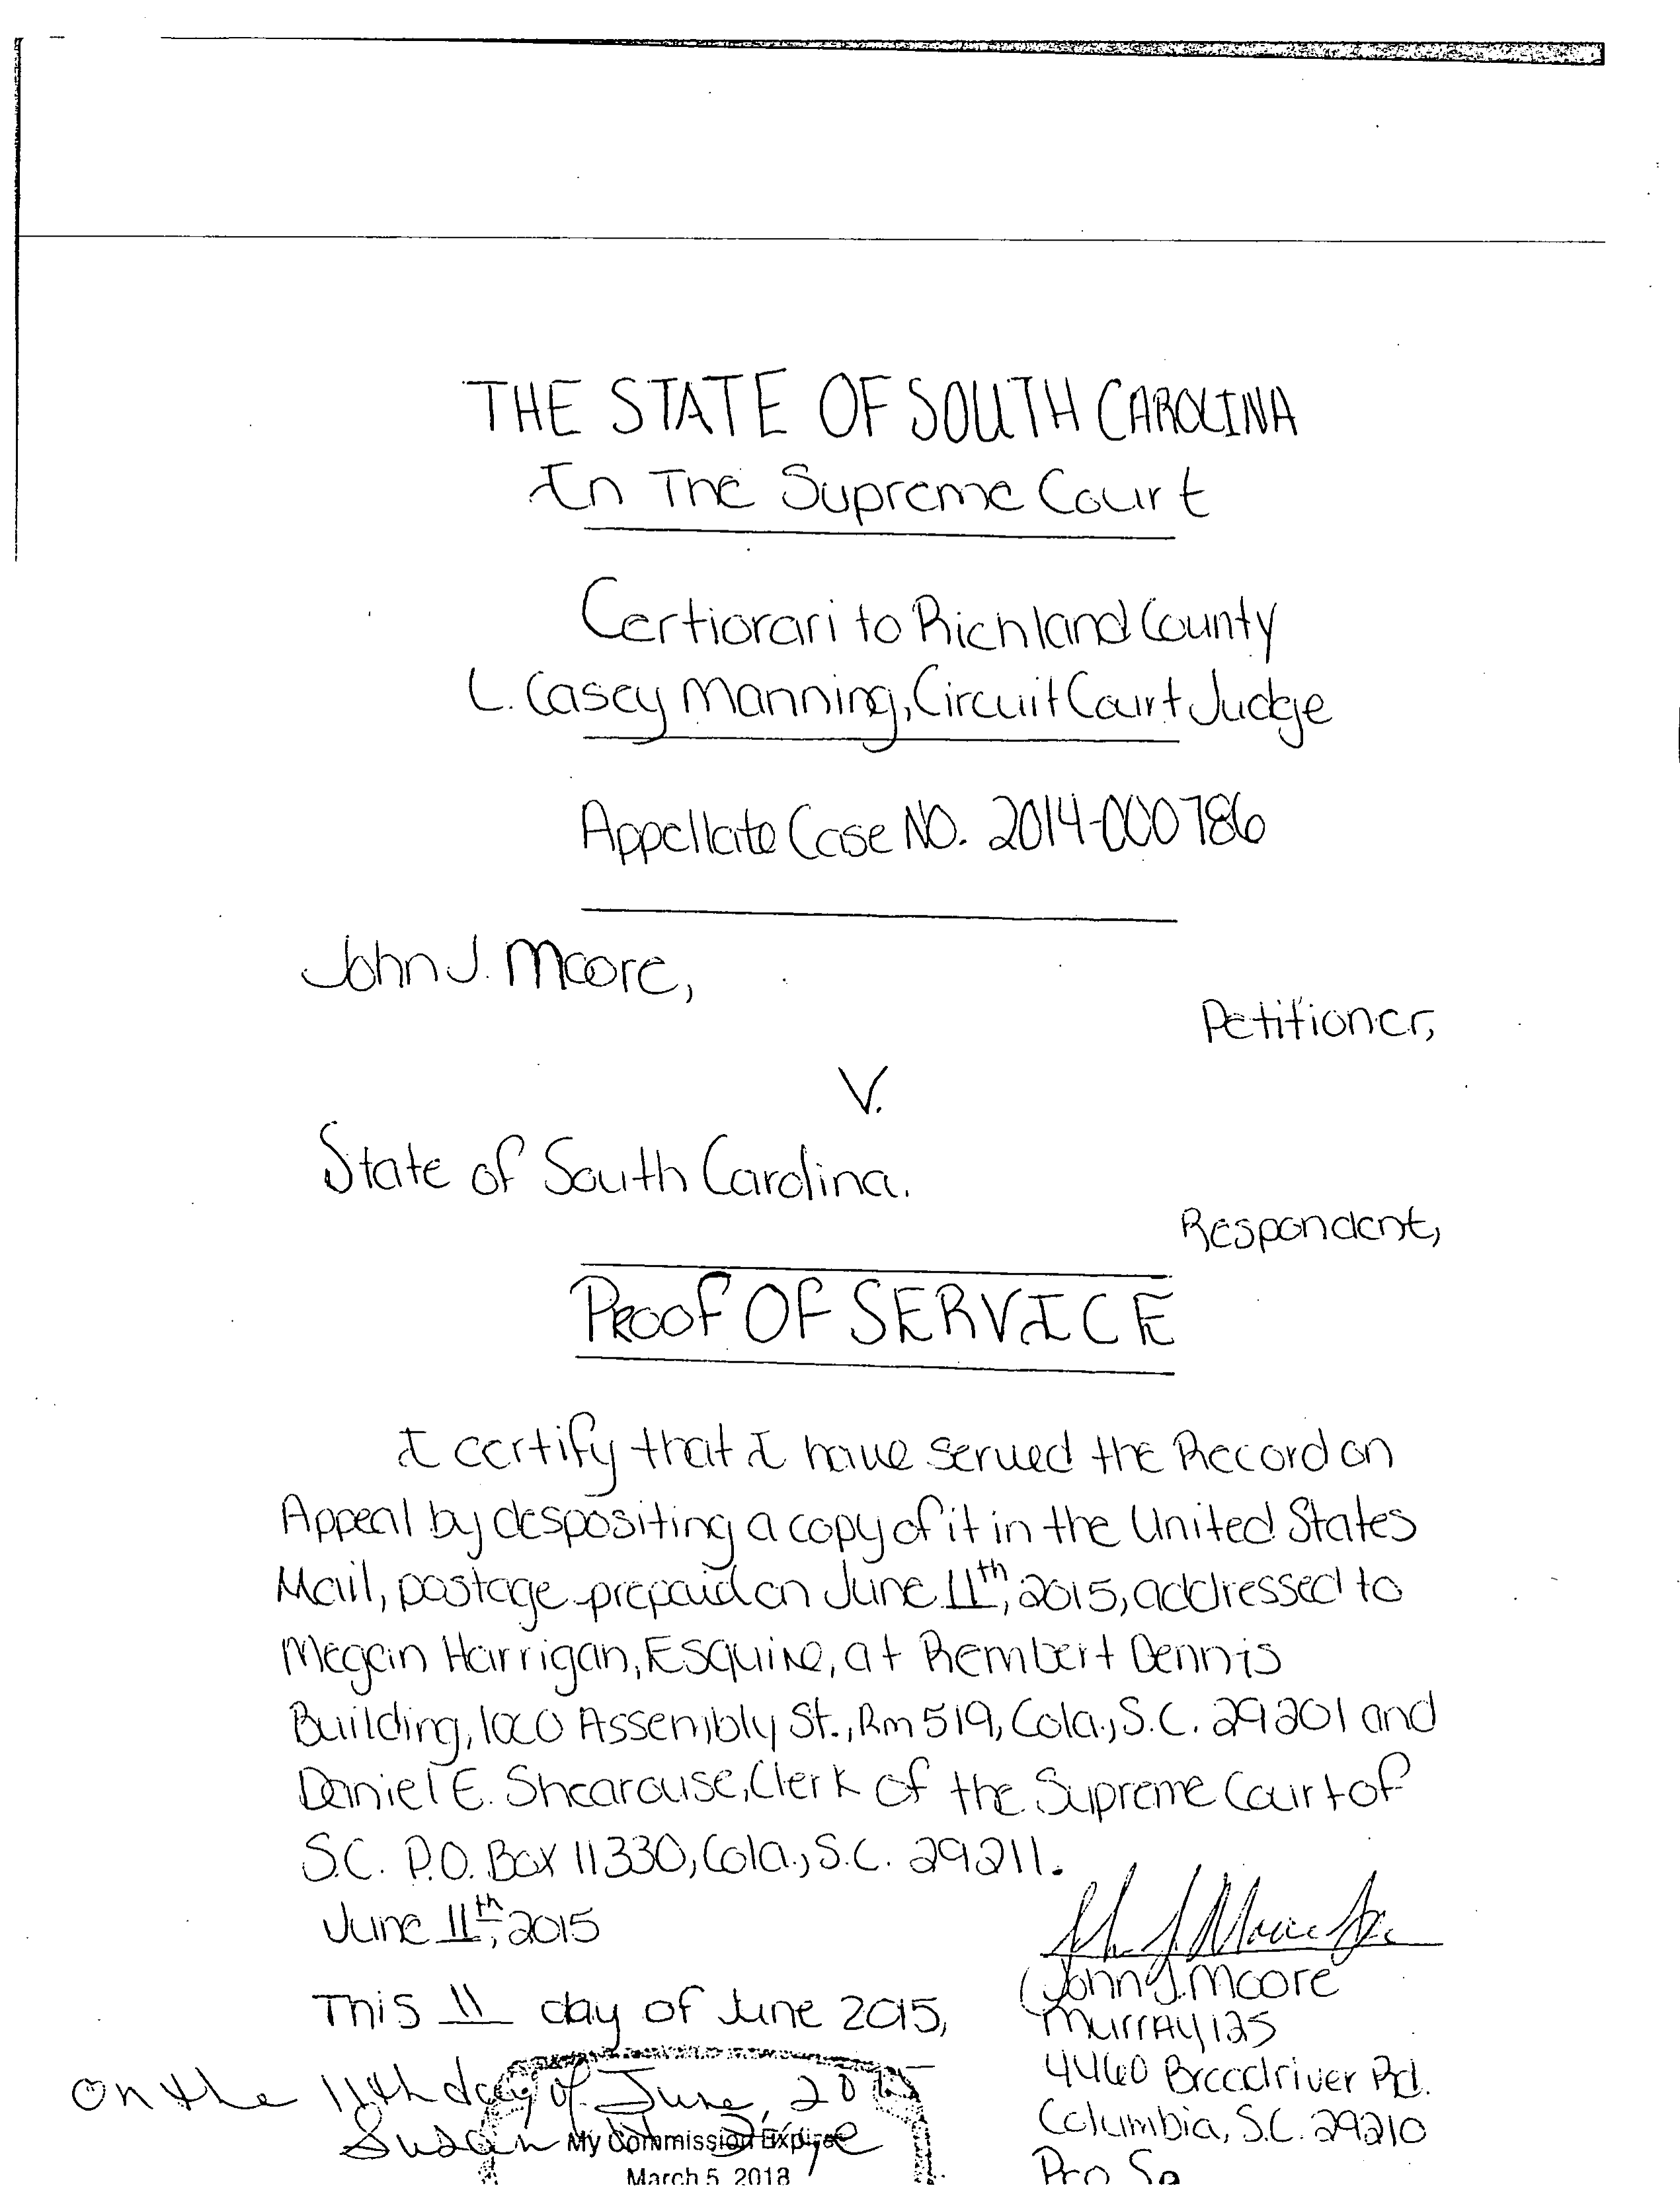 THE STATE OF SOUTH CAROLINA
In The Supreme Court
Certiorari to Richland County
L. Casey Manning, Circuit Court Judge
Appellate Case NO. 2014-000786
John J. Moore,
Petitioner,
V.
State of South Carolina.
Respondent,
PROOF OF SERVICE
I certify that I have served the Record on
Appeal by despositing a copy of it in the United States
Mail, postage prepaid on June 11th, 2015, addressed to
Megan Harrigan, Esquire, at Rembert Dennis
Building, 1000 Assembly St., Rm 519, Cola., S.C. 29201 and
Daniel E. Shearouse, Clerk of the Supreme Court of
S.C. P.O. Box 11330, Cola., S.C. 29211.
June 11th, 2015
John J. Moore
This 11 day of June 2015,
Murray 125
4460 Broadriver Rd.
Columbia, S.C. 29210
Pro Se
On the 11th day of June, 2015
Susan
My Commission Expires
March 5, 2018